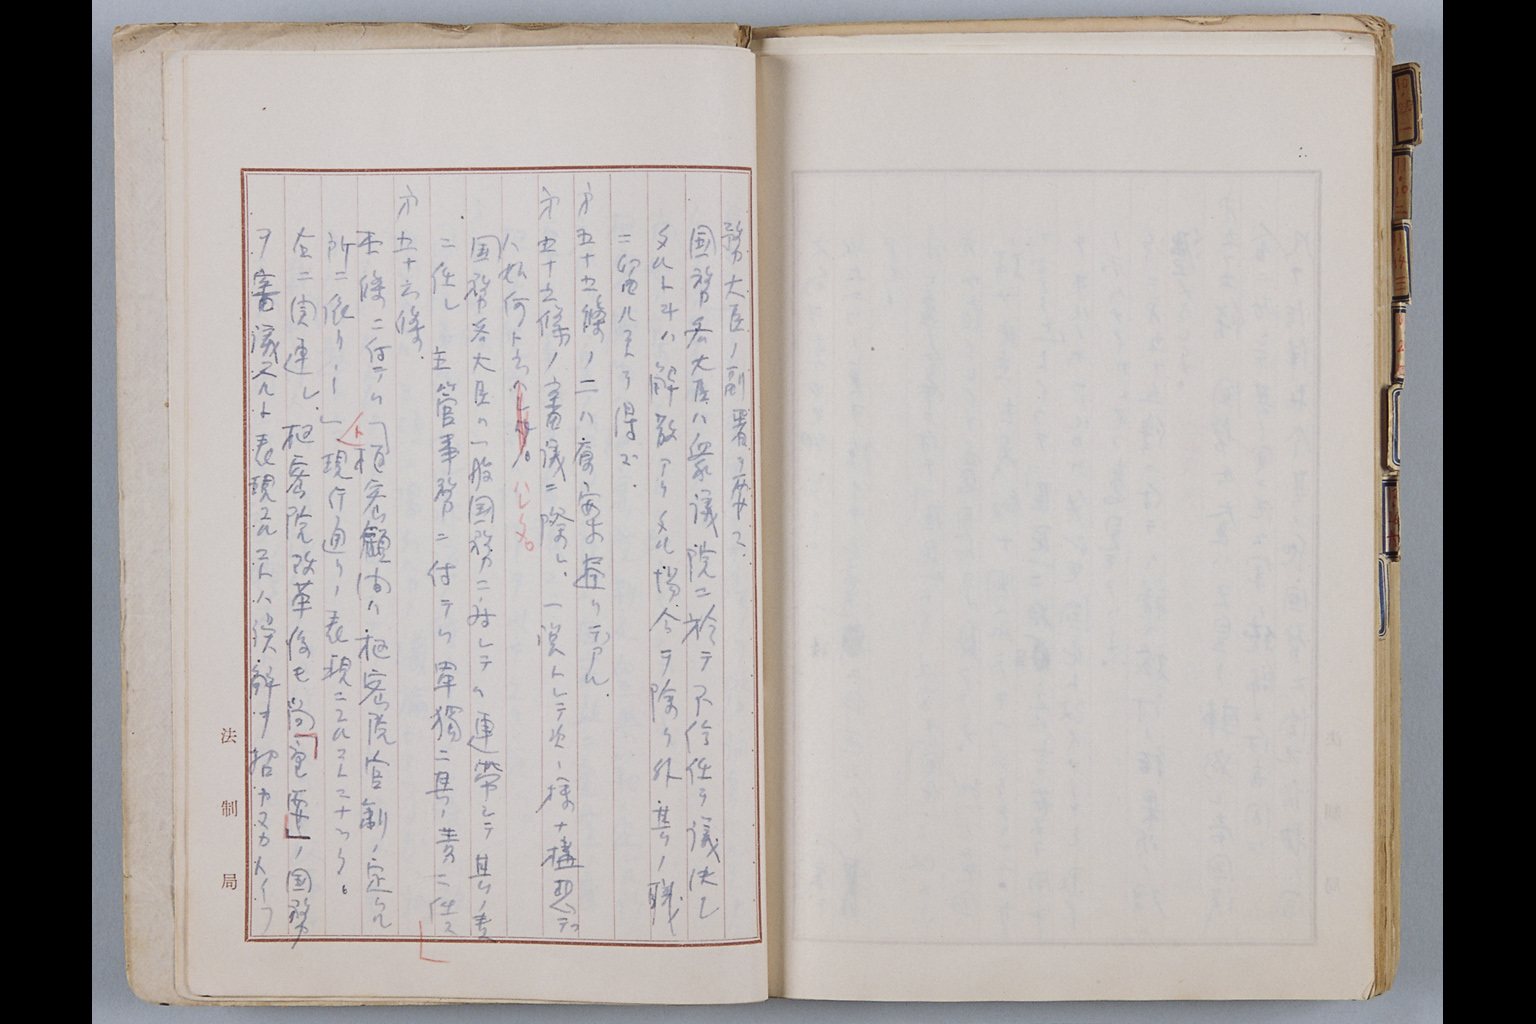 務大臣ノ副署ヲ要ス、
国務各大臣ハ衆議院ニ於テ不信任ヲ議決シ
タルトキハ解散アリタル場合ヲ除ク外其ノ職
ニ留ルコトヲ得ズ、
第五十五條ノ二ハ原案ノ
第五十五條ノ審議ニ際シ、一説トシテ次ノ様ナ構想
ハ如何ト云ハレタ。
国務各大臣ハ一般国務ニ対シテハ連帯シテ其ノ責
ニ任シ 主管事務ニ付テハ単獨ニ其ノ責ニ任ス」
第五十六條、
本條ニ付テハ「枢密顧問ハ枢密院官制ノ定ムル
所ニ依リ―」ト現行通リノ表現ニスルコトニナツタ。
之ニ関連シ、枢密院改革後モ尚「重要」ノ国務
ヲ審議スルト表現スルコトハ誤解ヲ招カヌカトイフ
法制局